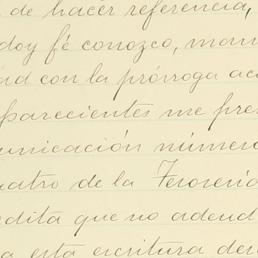 de hacer referencia,
doy fé conozco, man
ad con la prórroga ac
parecientes me pres
unicación número
uatro de la Tesorería
edita que no adeud
a esta escritura de